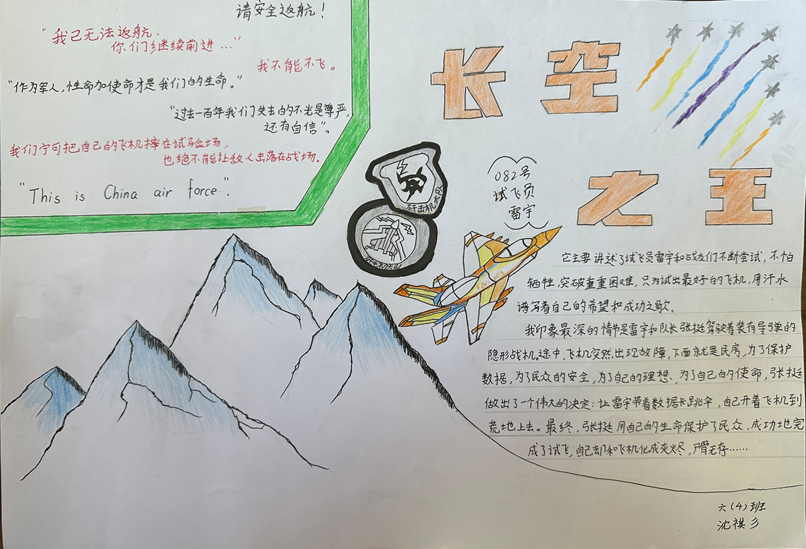 请安全返航！
"我已无法返航，
你们继续前进…"
我不能不飞。
"作为军人，性命加使命才是我们的生命。"
"过去一百年我们失去的不光是尊严，
还有自信"。
我们宁可把自己的飞机摔在试验场，
也绝不能让敌人击落在战场。
"This is China air force".
长空
之王
歼击机大队
082号
试飞员
雷宇
它主要讲述了试飞员雷宇和战友们不断尝试，不怕
牺牲，突破重重困难，只为试出最好的飞机，用汗水
谱写着自己的希望和成功之歌。
我印象最深的情节是雷宇和队长张挺驾驶着装有导弹的
隐形战机，途中，飞机突然出现故障，下面就是民房，为了保护
数据，为了民众的安全，为了自己的理想、为了自己的使命，张挺
做出了一个伟大的决定：让雷宇带着数据卡跳伞，自己开着飞机到
荒地上去。最终，张挺用自己的生命保护了民众，成功地完
成了试飞，自己却和飞机化成灰烬，尸骨无存……
六（4）班
沈祺彡